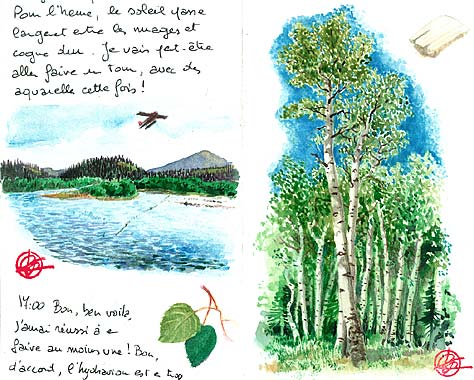 Pour l'heure, le soleil passe
entre les nuages et
cogne dur. Je vais pet-être
aller faire un tour, avec des
aquarelle cette fois !
17:00 Bon, ben voilà,
J'aurai réussi à e
faire au moins une ! Bon,
d'accord, l'hydravion est